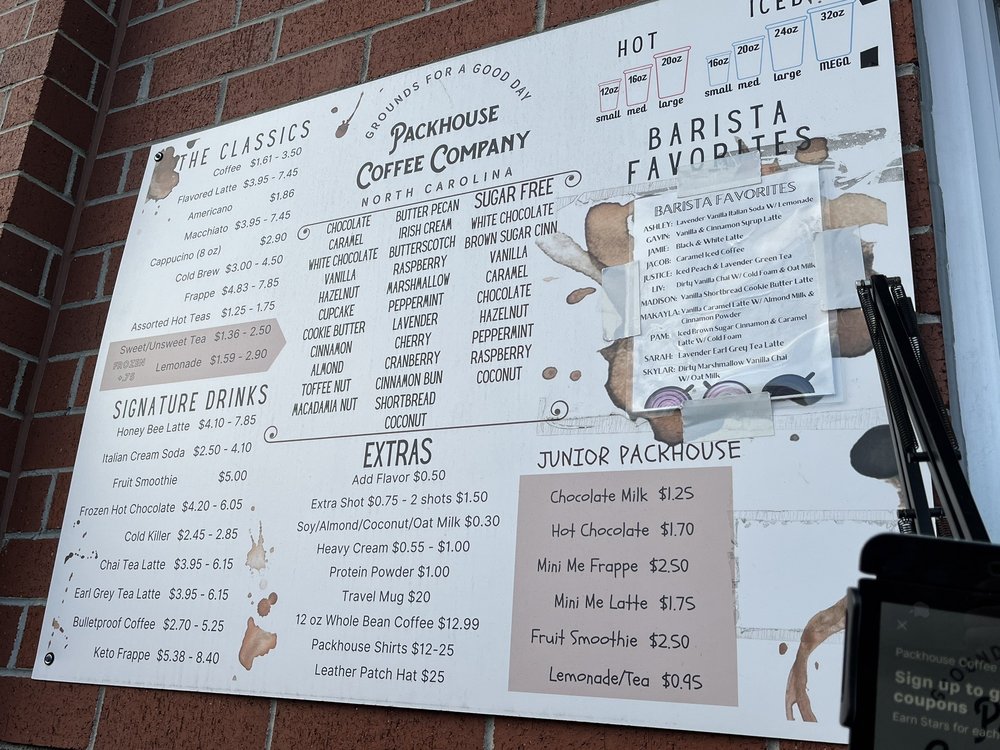 HOT
12oz
16oz
20oz
small
med
large
16oz
20oz
24oz
32oz
small
med
large
MEGA
GROUNDS FOR A GOOD DAY
PACKHOUSE
COFFEE COMPANY
NORTH CAROLINA
THE CLASSICS
Coffee $1.61 - 3.50
Flavored Latte $3.95 - 7.45
Americano $1.86
Macchiato $3.95 - 7.45
Cappucino (8 oz) $2.90
Cold Brew $3.00 - 4.50
Frappe $4.83 - 7.85
Assorted Hot Teas $1.25 - 1.75
Sweet/Unsweet Tea $1.36 - 2.50
Lemonade $1.59 - 2.90
FROZEN
+.75
SIGNATURE DRINKS
Honey Bee Latte $4.10 - 7.85
Italian Cream Soda $2.50 - 4.10
Fruit Smoothie $5.00
Frozen Hot Chocolate $4.20 - 6.05
Cold Killer $2.45 - 2.85
Chai Tea Latte $3.95 - 6.15
Earl Grey Tea Latte $3.95 - 6.15
Bulletproof Coffee $2.70 - 5.25
Keto Frappe $5.38 - 8.40
CHOCOLATE
CARAMEL
WHITE CHOCOLATE
VANILLA
HAZELNUT
CUPCAKE
COOKIE BUTTER
CINNAMON
ALMOND
TOFFEE NUT
MACADAMIA NUT
BUTTER PECAN
IRISH CREAM
BUTTERSCOTCH
RASPBERRY
MARSHMALLOW
PEPPERMINT
LAVENDER
CHERRY
CRANBERRY
CINNAMON BUN
SHORTBREAD
COCONUT
SUGAR FREE
WHITE CHOCOLATE
BROWN SUGAR CINN
VANILLA
CARAMEL
CHOCOLATE
HAZELNUT
PEPPERMINT
RASPBERRY
COCONUT
EXTRAS
Add Flavor $0.50
Extra Shot $0.75 - 2 shots $1.50
Soy/Almond/Coconut/Oat Milk $0.30
Heavy Cream $0.55 - $1.00
Protein Powder $1.00
Travel Mug $20
12 oz Whole Bean Coffee $12.99
Packhouse Shirts $12-25
Leather Patch Hat $25
BARISTA
FAVORITES
BARISTA FAVORITES
ASHLEY: Lavender Vanilla Italian Soda W/ Lemonade
GAVIN: Vanilla & Cinnamon Syrup Latte
JAMIE: Black & White Latte
JACOB: Caramel Iced Coffee
JUSTICE: Iced Peach & Lavender Green Tea
LIV: Dirty Vanilla Chai W/ Cold Foam & Oat Milk
MADISON: Vanilla Shortbread Cookie Butter Latte
MAKAYLA: Vanilla Caramel Latte W/ Almond Milk &
Cinnamon Powder
PAM: Iced Brown Sugar Cinnamon & Caramel
Latte W/ Cold Foam
SARAH: Lavender Earl Grey Tea Latte
SKYLAR: Dirty Marshmallow Vanilla Chai
W/ Oat Milk
JUNIOR PACKHOUSE
Chocolate Milk $1.25
Hot Chocolate $1.70
Mini Me Frappe $2.50
Mini Me Latte $1.75
Fruit Smoothie $2.50
Lemonade/Tea $0.95
Packhouse Coffee
Sign up to g
coupons
Earn Stars for each